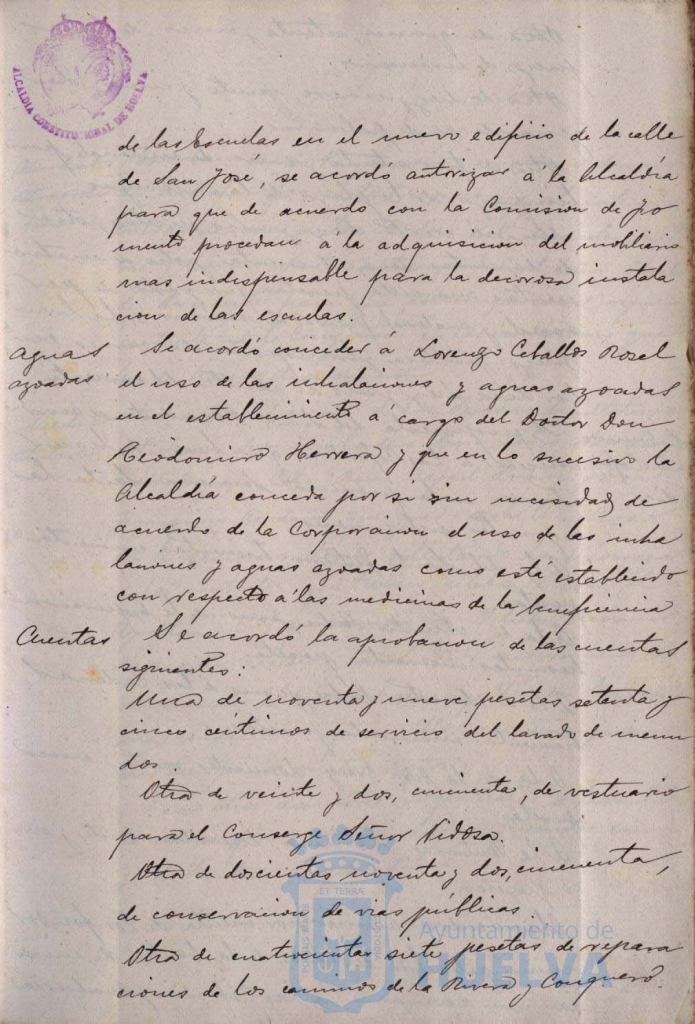 ALCALDIA CONSTITUCIONAL DE HUELVA
de las Escuelas en el nuevo edificio de la calle
de San José, se acordó autorizar á la Alcaldía
para que de acuerdo con la Comision de Fo
mento procedan á la adquisicion del mobiliario
mas indispensable para la decorosa instala
cion de las escuelas.
Aguas
azoadas
Se acordó conceder á Lorenzo Ceballos Rosel
el uso de las inhalaciones y aguas azoadas
en el establecimiento á cargo del Doctor Don
Teodomiro Herrera y que en lo sucesivo la
Alcaldía conceda por si sin necesidad de
acuerdo de la Corporacion el uso de las inha
laciones y aguas azoadas como está establecido
con respecto á las medicinas de la beneficencia
Cuentas
Se acordó la aprobacion de las cuentas
siguientes:
Una de noventa y nueve pesetas setenta y
cinco céntimos de servicio del lavado de menu
dos.
Otra de veinte y dos, cincuenta, de vestuario
para el Conserge Señor Vidosa.
Otra de doscientas noventa y dos, cincuenta,
de conservacion de vias públicas.
Otra de cuatrocientas siete pesetas de repara
ciones de los caminos de la Rivera y Conquero.
ET TERRA
Ayuntamiento de
HUELVA